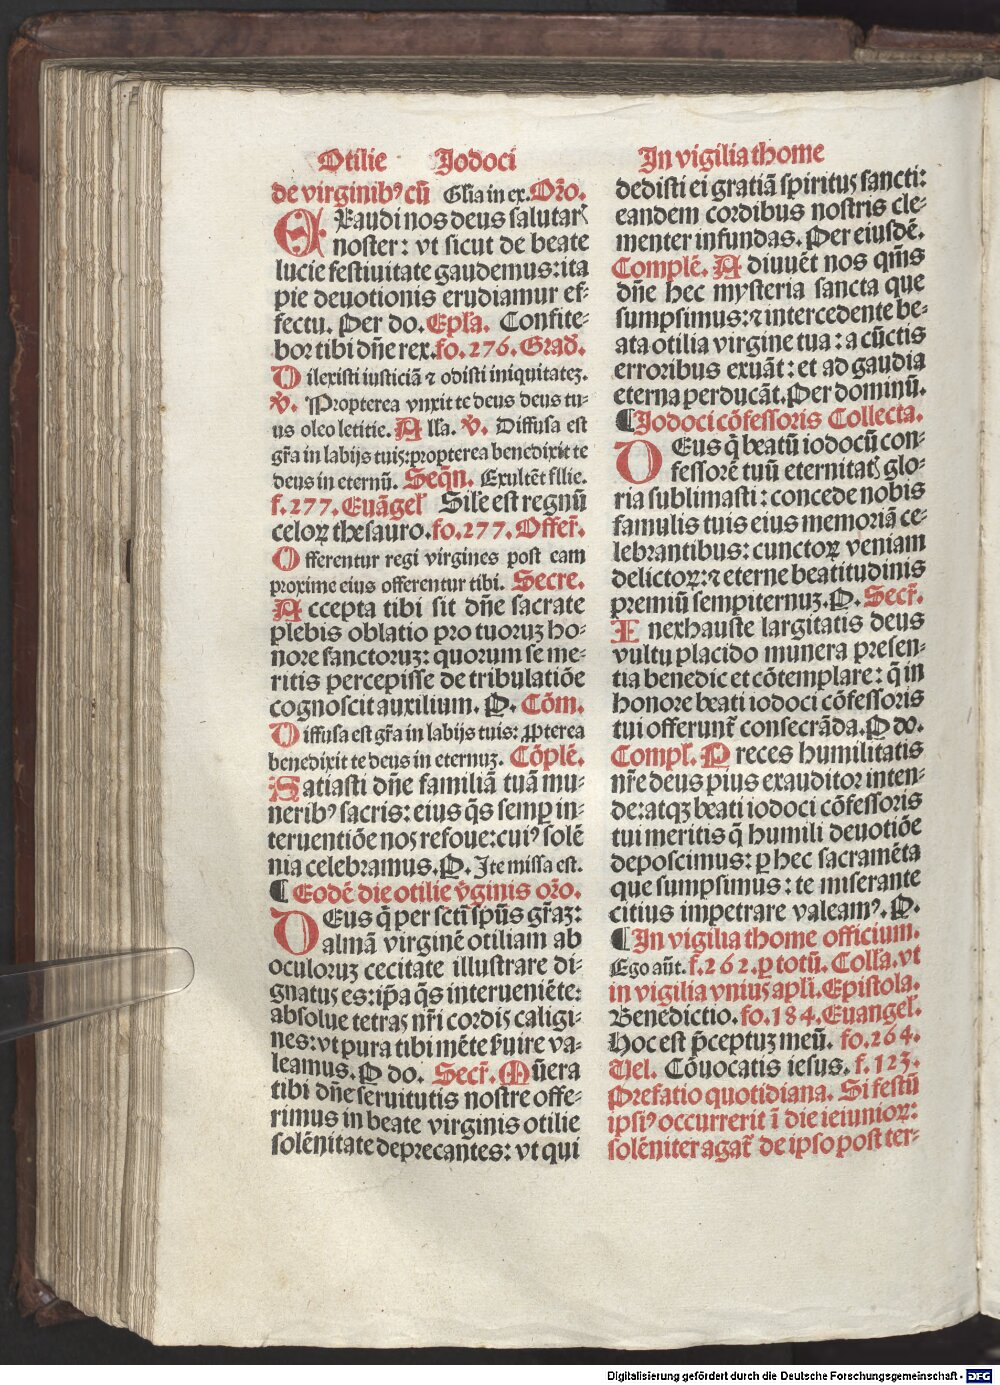 Otilie Jodoci
de virginibꝰ cū Gl'ia in ex. Or̄o.
EXaudi nos deus salutar
noster: vt sicut de beate
lucie festiuitate gaudemus: ita
pie deuotionis erudiamur ef⸗
fectu. Per do. Epl'a. Confite⸗
bor tibi dn̄e rex. fo. 276. Grad.
Dilexisti iusticiā ⁊ odisti iniquitatez.
V̄. Propterea vnxit te deus deus tu⸗
us oleo letitie. Alla. V̄. Diffusa est
gr̄a in labijs tuis: propterea benedixit te
deus in eternū. Seqn̄. Exultēt filie.
f. 277. Euāgel' Sile est regnū
celoꝝ thesauro. fo. 277. Offer̄.
Offerentur regi virgines post eam
proxime eius offerentur tibi. Secre.
Accepta tibi sit dn̄e sacrate
plebis oblatio pro tuoruz ho⸗
nore sanctoruz: quorum se me⸗
ritis percepisse de tribulatiōe
cognoscit auxilium. P. Cōm.
Diffusa est gr̄a in labijs tuis: ꝓpterea
benedixit te deus in eternuz. Cōplē.
Satiasti dn̄e familiā tuā mu⸗
neribꝰ sacris: eius q̄s semꝑ in⸗
teruentiōe nos refoue: cuiꝰ solē
nia celebramus. P. Ite missa est.
¶ Eodē die otilie v̄ginis or̄o.
DEus q̄ per sctī spūs gr̄az:
almā virginē otiliam ab
oculoruz cecitate illustrare di⸗
gnatus es: ip̄a q̄s interueniēte:
absolue tetras nr̄i cordis caligi⸗
nes: vt pura tibi mēte s̄uire va⸗
leamus. P do. Secr̄. Mūera
tibi dn̄e seruitutis nostre offe⸗
rimus in beate virginis otilie
solēnitate deprecantes: vt qui
In vigilia thome
dedisti ei gratiā spiritus sancti:
eandem cordibus nostris cle⸗
menter infundas. Per eiusdē.
Complē. Adiuuēt nos qm̄s
dn̄e hec mysteria sancta que
sumpsimus: ⁊ intercedente be⸗
ata otilia virgine tua: a cūctis
erroribus exuāt: et ad gaudia
eterna perducāt. Per dominū.
¶ Jodoci cōfessoris Collecta.
DEus q̄ beatū iodocū con⸗
fessorē tuū eternitatꝭ glo⸗
ria sublimasti: concede nobis
famulis tuis eius memoriā ce⸗
lebrantibus: cunctoꝝ veniam
delictoꝝ: ⁊ eterne beatitudinis
premiū sempiternuz. P. Secr̄.
Inexhauste largitatis deus
vultu placido munera presen⸗
tia benedic et cōtemplare: q̄ in
honore beati iodoci cōfessoris
tui offerunt᷑ consecrāda. P do.
Compl'. Preces humilitatis
nr̄e deus pius exauditor inten⸗
de: atqꝫ beati iodoci cōfessoris
tui meritis q̄ humili deuotiōe
deposcimus: ꝑ hec sacramēta
que sumpsimus: te miserante
citius impetrare valeamꝰ. P.
¶ In vigilia thome officium.
Ego aūt. f. 262. ꝑ totū. Colla. vt
in vigilia vnius apl'i. Epistola.
Benedictio. fo. 184. Euangel'.
Hoc est p̄ceptuz meū. fo. 264.
Uel. Cōuocatis iesus. f. 123.
Prefatio quotidiana. Si festū
ipsiꝰ occurrerit ī die ieiunioꝝ:
solēniter agat᷑ de ipso post ter⸗
Digitalisierung gefördert durch die Deutsche Forschungsgemeinschaft - DFG